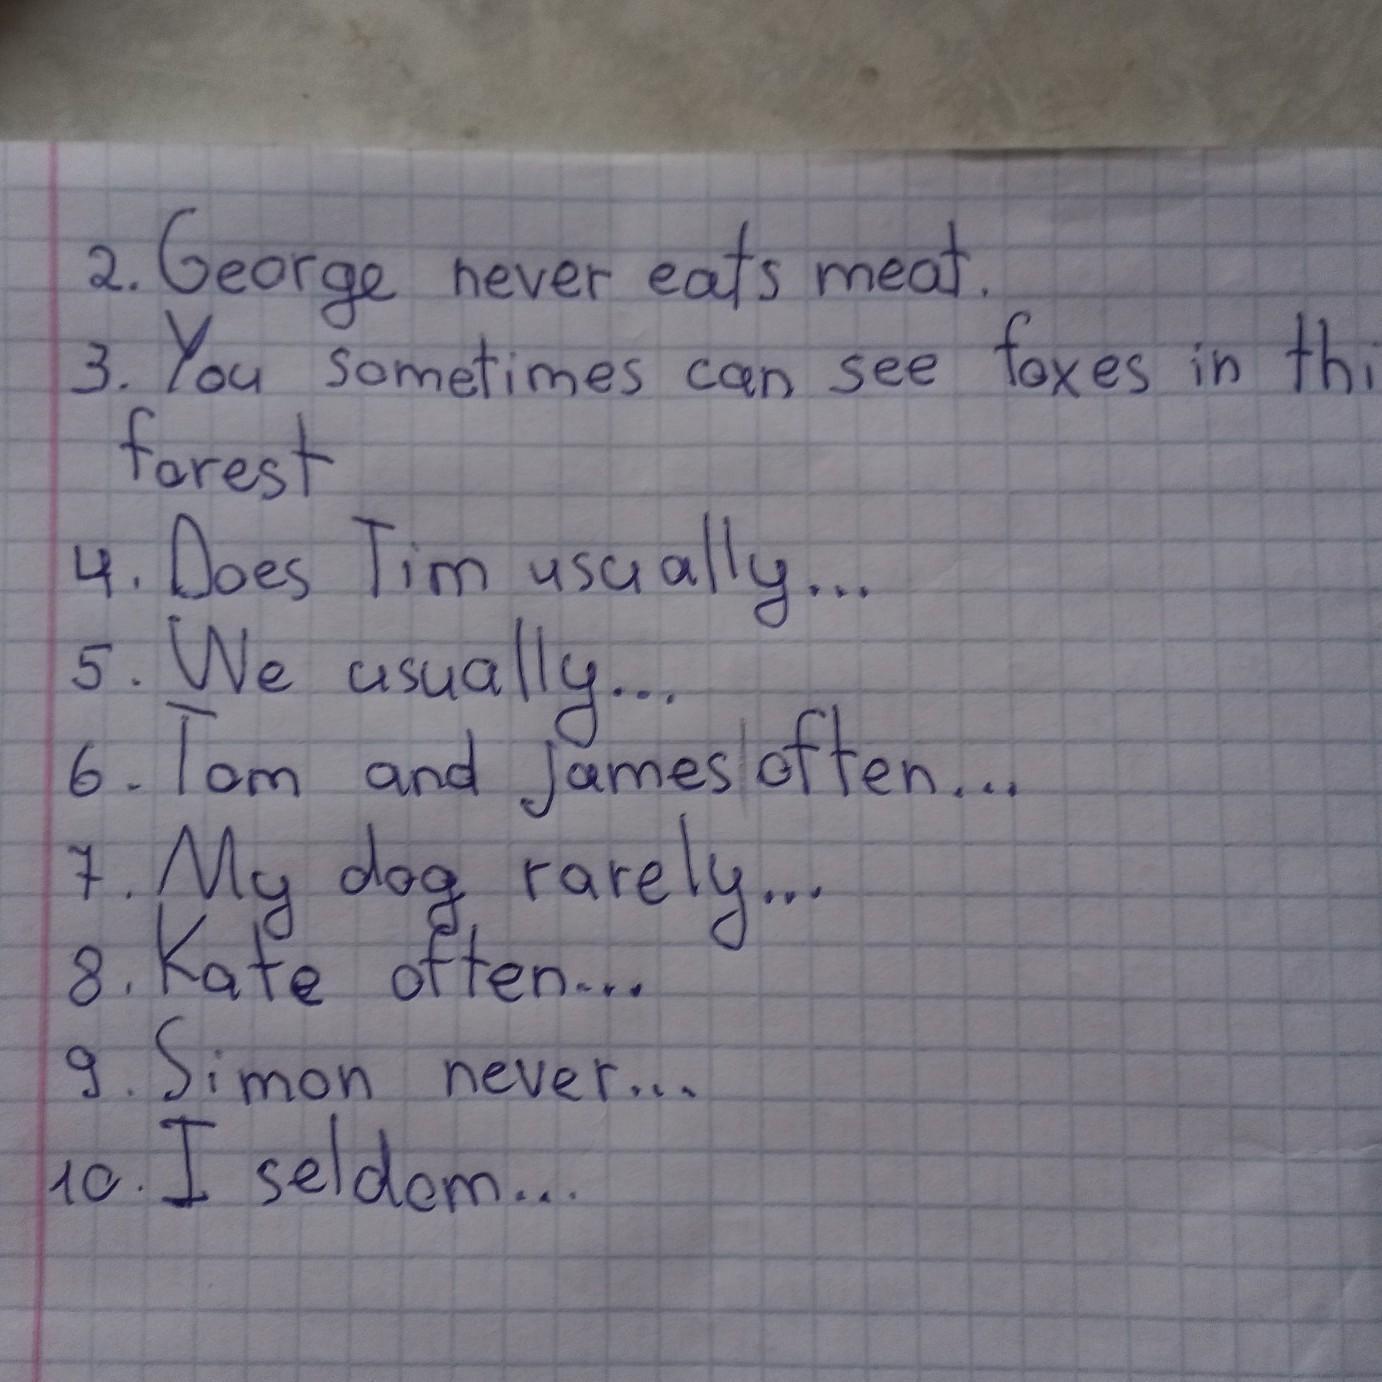 2. George never eats meat.
3. You sometimes can see foxes in thi
forest
4. Does Tim usually...
5. We usually...
6. Tom and James often...
7. My dog rarely...
8. Kate often...
9. Simon never...
10. I seldom...